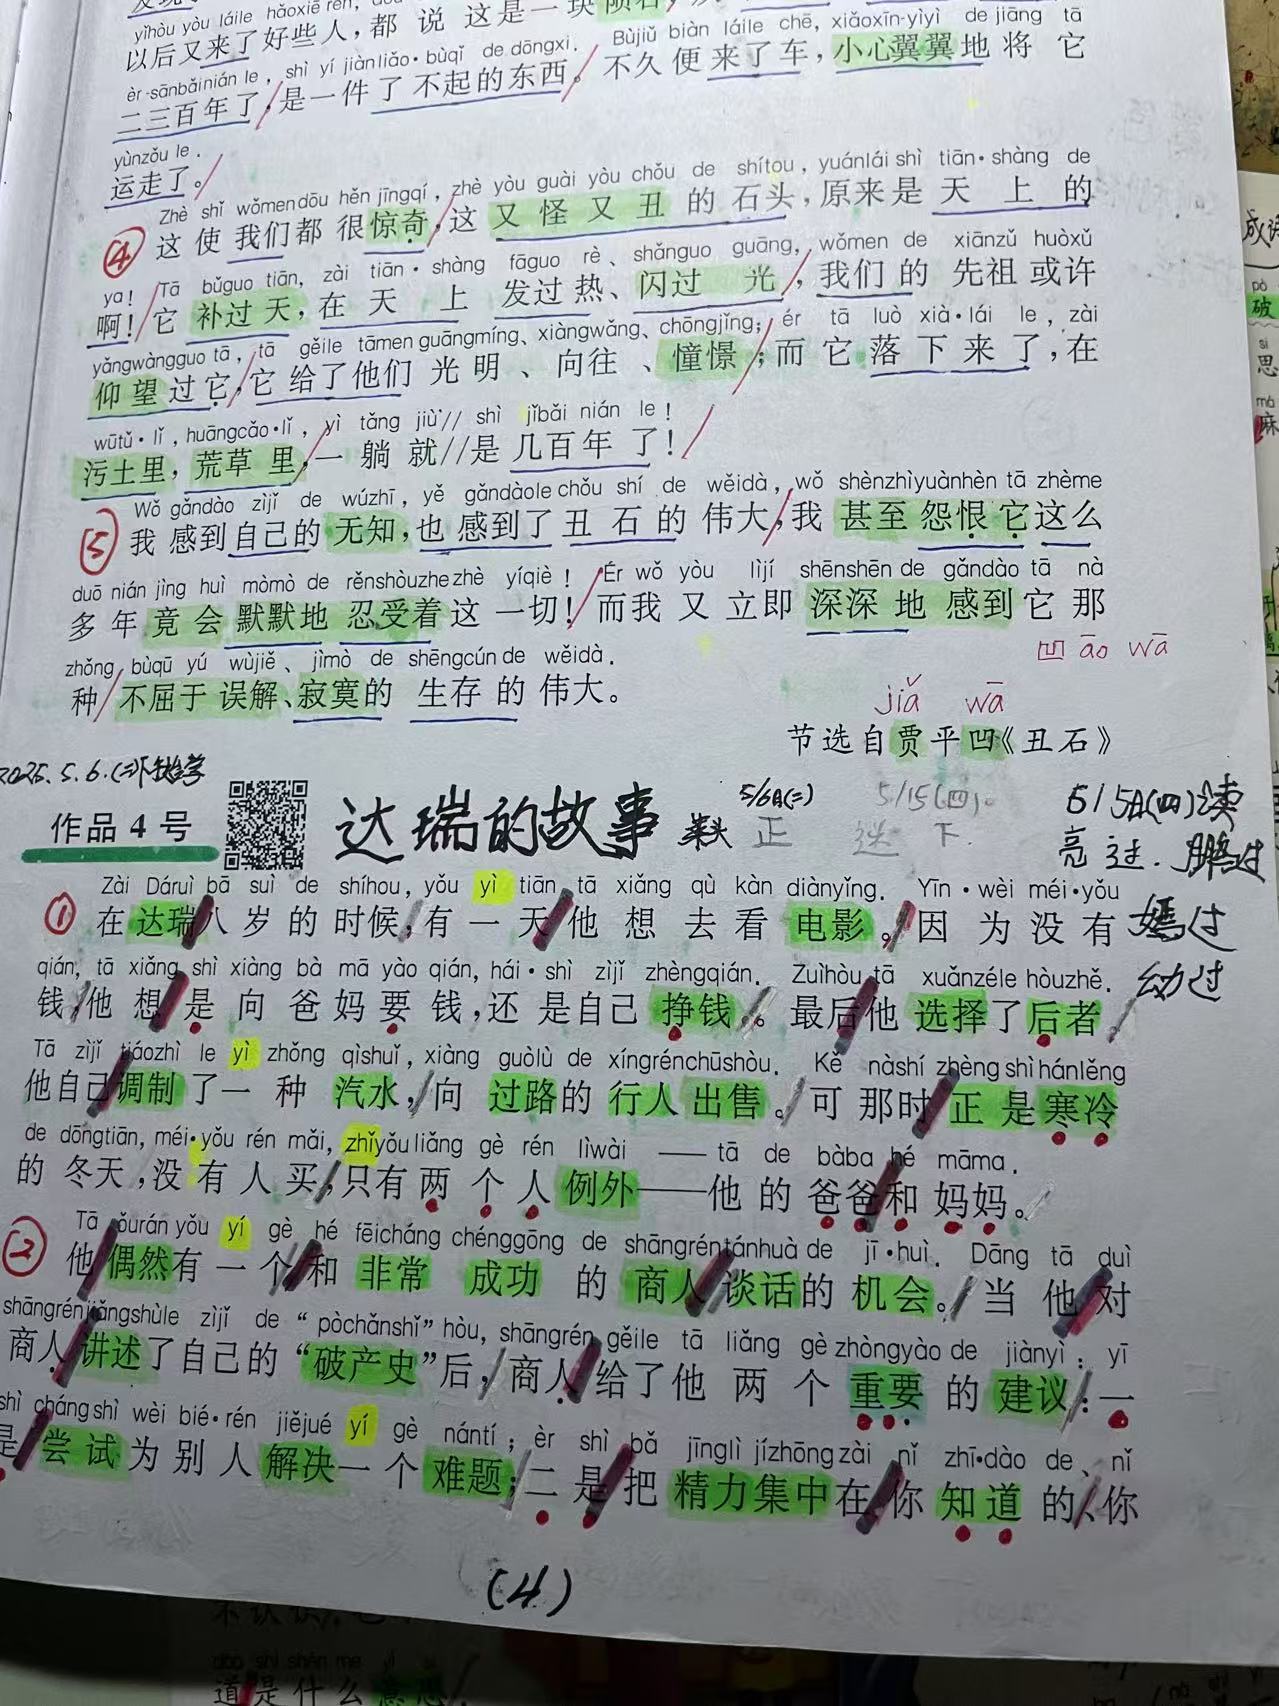 yǐhòu yòu láile hǎoxiē rén,
以后又来了好些人，都 说 这是一块陨石，
èr-sānbǎinián le, shì yí jiànliǎo·bùqǐ de dōngxi. Bùjiǔ biàn láile chē, xiǎoxīn-yìyì de jiāng tā
二三百年了，是一件了不起的东西。不久便来了车，小心翼翼地将它
yùnzǒu le.
运走了。
Zhè shǐ wǒmendōu hěn jīngqí, zhè yòu guài yòu chǒu de shítou, yuánlái shì tiān·shàng de
④ 这使我们都很惊奇，这又怪又丑的石头，原来是天上的
ya! Tā bǔguo tiān, zài tiān·shàng fāguo rè、shǎnguo guāng, wǒmen de xiānzǔ huòxǔ
啊！它补过天，在天上发过热、闪过光，我们的先祖或许
yǎngwàngguo tā, tā gěile tāmen guāngmíng、xiàngwǎng、chōngjǐng; ér tā luò xià·lái le, zài
仰望过它，它给了他们光明、向往、憧憬；而它落下来了，在
wūtǔ·lǐ, huāngcǎo·lǐ, yì tǎng jiù// shì jǐbǎi nián le!
污土里，荒草里，一躺就//是几百年了！
Wǒ gǎndào zìjǐ de wúzhī, yě gǎndàole chǒu shí de wěidà, wǒ shènzhìyuànhèn tā zhème
⑤ 我感到自己的无知，也感到了丑石的伟大，我甚至怨恨它这么
duō nián jìng huì mòmò de rěnshòuzhe zhè yíqiè! Ér wǒ yòu lìjí shēnshēn de gǎndào tā nà
多年竟会默默地忍受着这一切！而我又立即深深地感到它那
凹 āo wā
zhǒng bùqū yú wùjiě、jìmò de shēngcún de wěidà.
种不屈于误解、寂寞的生存的伟大。
jiǎ wā
节选自贾平凹《丑石》
作品4号
达瑞的故事
5/6(二)
5/15(四)
正
Zài Dáruì bā suì de shíhou, yǒu yì tiān tā xiǎng qù kàn diànyǐng. Yīn·wèi méi·yǒu
① 在达瑞八岁的时候，有一天他想去看电影。因为没有
妈过
qián, tā xiǎng shì xiàng bà mā yào qián, hái·shì zìjǐ zhèngqián. Zuìhòu tā xuǎnzéle hòuzhě.
钱，他想是向爸妈要钱，还是自己挣钱。最后他选择了后者。
Tā zìjǐ tiáozhì le yì zhǒng qìshuǐ, xiàng guòlù de xíngrénchūshòu. Kě nàshí zhèng shì hánlěng
他自己调制了一种汽水，向过路的行人出售。可那时正是寒冷
de dōngtiān, méi·yǒu rén mǎi, zhǐyǒu liǎng gè rén lìwài —— tā de bàba hé māma.
的冬天，没有人买，只有两个人例外——他的爸爸和妈妈。
Tā ǒurán yǒu yí gè hé fēicháng chénggōng de shāngréntánhuà de jī·huì. Dāng tā duì
② 他偶然有一个和非常成功的商人谈话的机会。当他对
shāngrénjiǎngshùle zìjǐ de “pòchǎnshǐ” hòu, shāngrén gěile tā liǎng gè zhòngyào de jiànyì: yī
商人讲述了自己的“破产史”后，商人给了他两个重要的建议：一
shì chángshì wèi bié·rén jiějué yí gè nántí; èr shì bǎ jīnglì jízhōng zài nǐ zhī·dào de、nǐ
是尝试为别人解决一个难题；二是把精力集中在你知道的、你
(4)